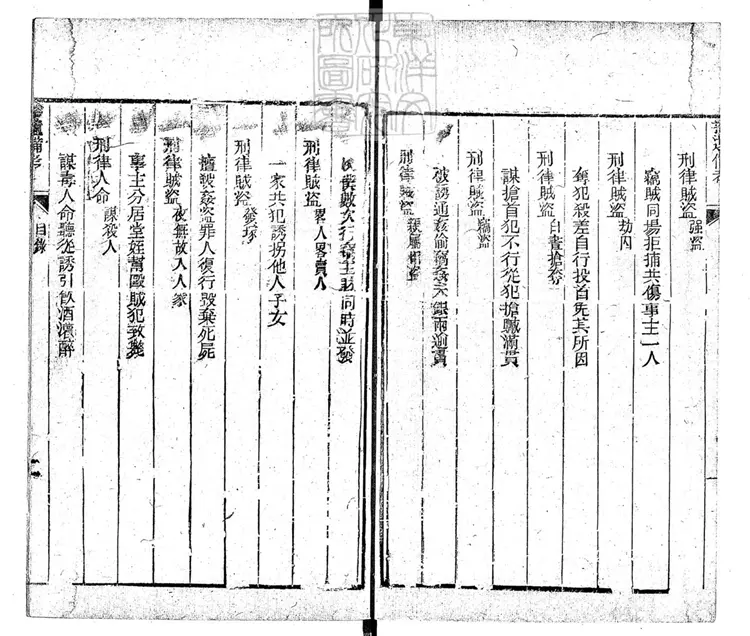 刑律賊盜 強盜
竊賊同場拒捕共傷事主一人
刑律賊盜 劫囚
奪犯殺差自行投首免其所因
刑律賊盜 白晝搶奪
謀搶首犯不行從犯搶贓滿貫
刑律賊盜 竊盜
被誘通姦偷竊姦夫銀兩逾貫
刑律賊盜 親屬相盜
僕數次行竊主財同時並發
刑律賊盜 畧人畧賣人
一家共犯誘拐他人子女
刑律賊盜 發塚
擅殺姦盜罪人復行毀棄死屍
刑律賊盜 夜無故入人家
事主分居堂姪幫毆賊犯致斃
刑律人命 謀殺人
謀毒人命聽從誘引飲酒灌醉
目錄